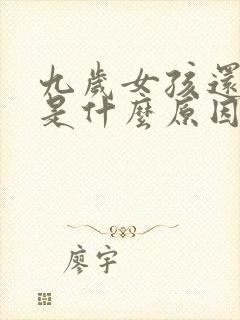 九歲女孩還
是什麼原因
廖宇